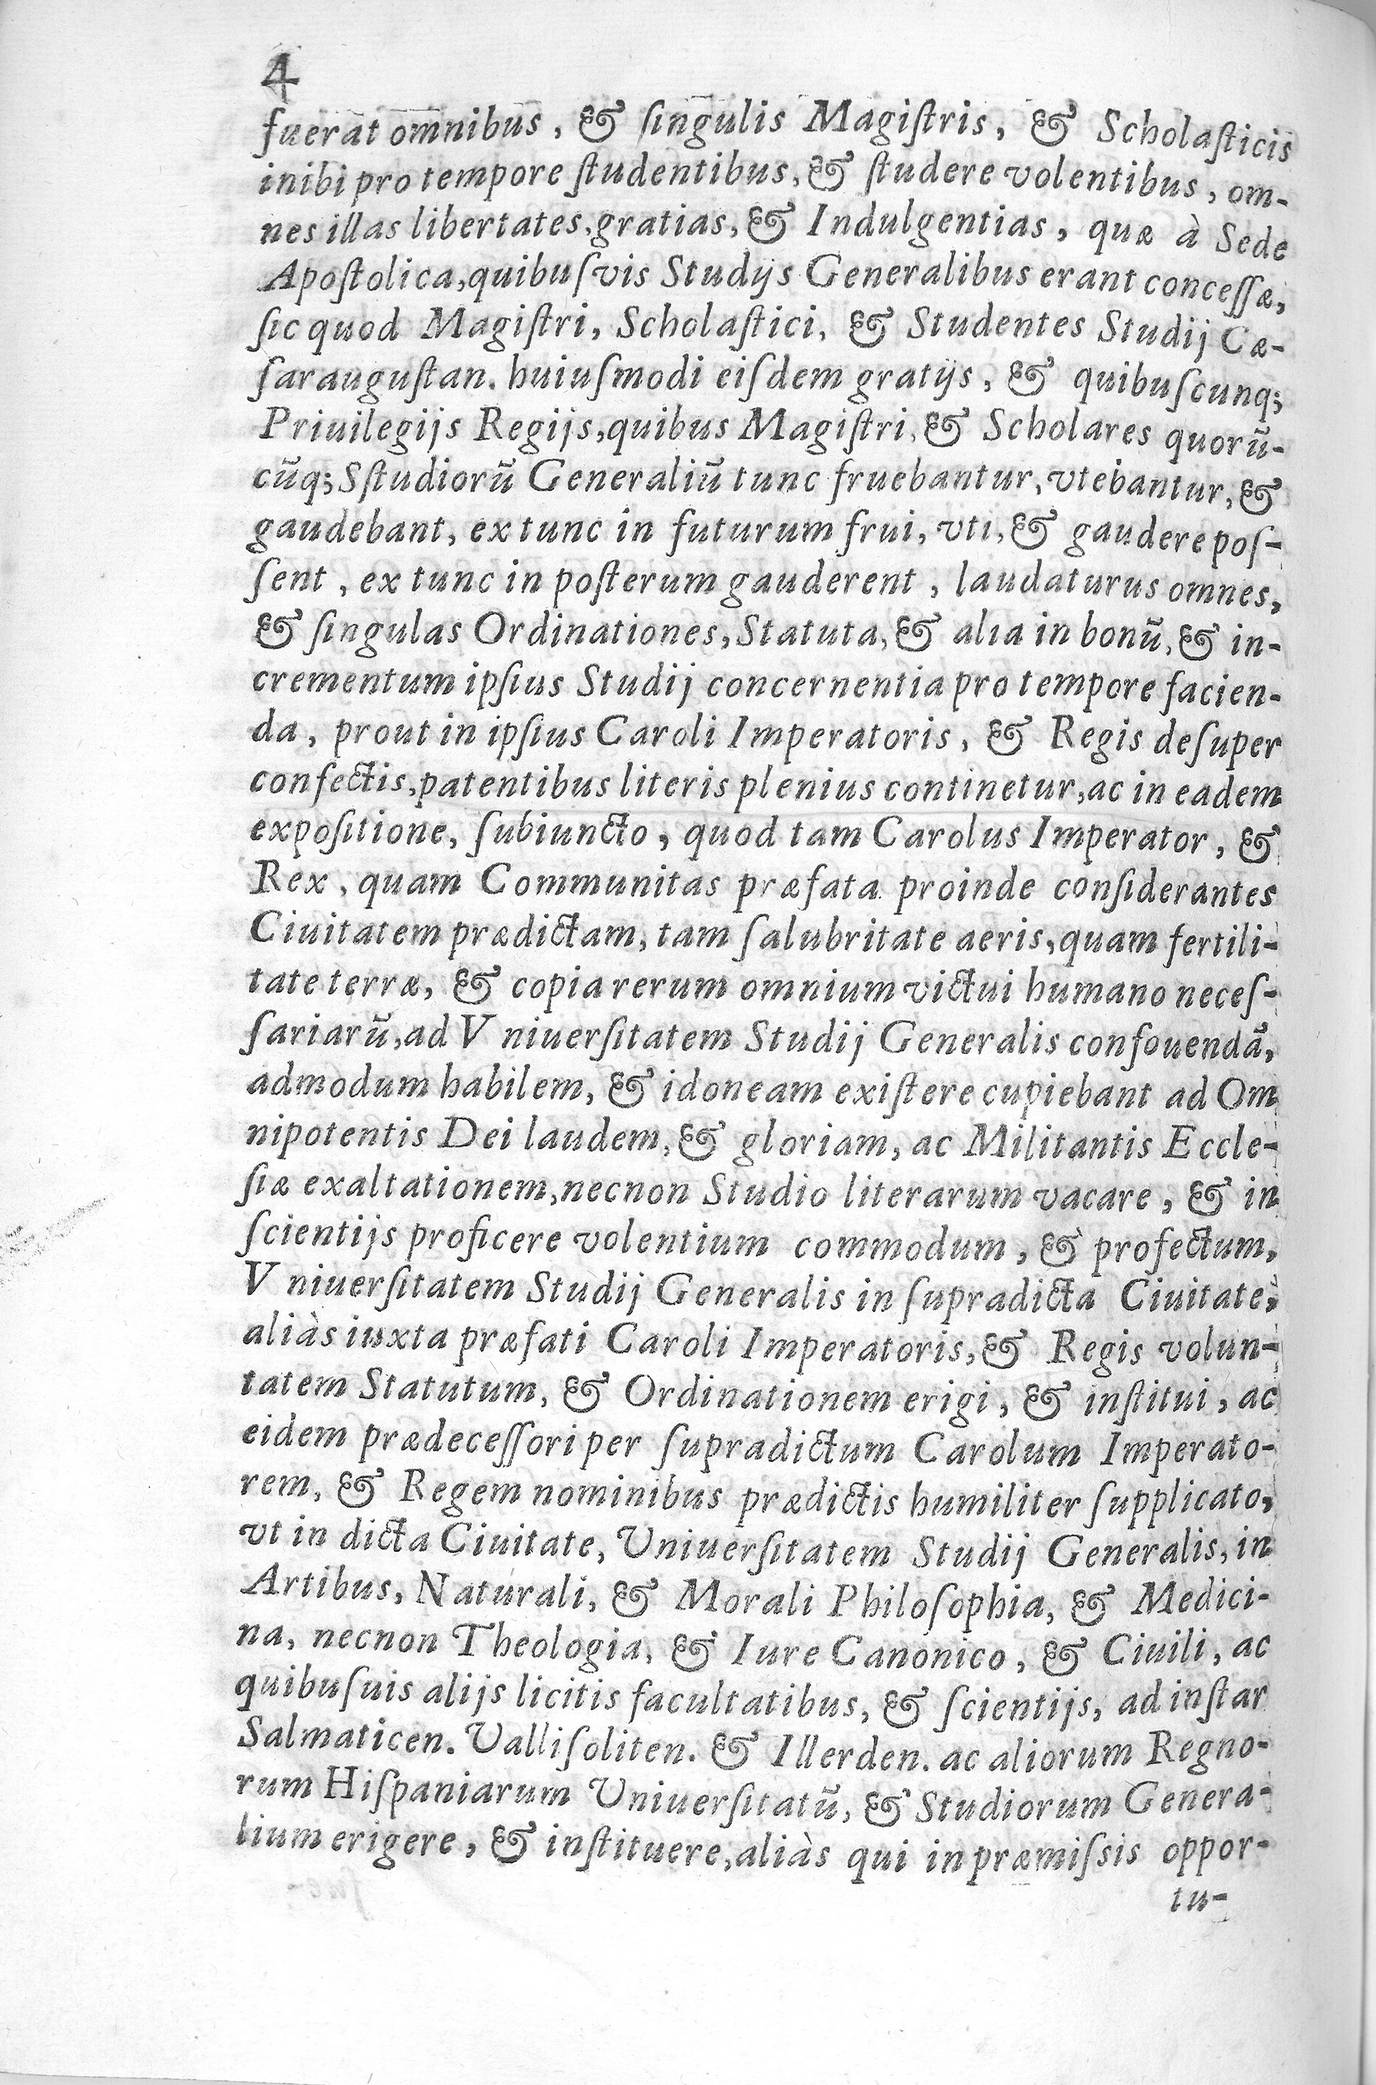 4
fuerat omnibus, & ſingulis Magiſtris, & Scholaſticis
inibi pro tempore ſtudentibus, & ſtudere volentibus, om-
nes illas libertates, gratias, & Indulgentias, quæ à Sede
Apoſtolica, quibuſvis Studijs Generalibus erant conceſſæ,
ſic quod Magiſtri, Scholaſtici, & Studentes Studij Cæ-
ſarauguſtan. huiuſmodi eiſdem gratijs, & quibuſcunq;
Priuilegijs Regijs, quibus Magiſtri, & Scholares quorũ-
cũq; Sſtudiorũ Generaliũ tunc fruebantur, vtebantur, &
gaudebant, ex tunc in futurum frui, vti, & gaudere poſ-
ſent, ex tunc in poſterum gauderent, laudaturus omnes,
& ſingulas Ordinationes, Statuta, & alia in bonũ, & in-
crementum ipſius Studij concernentia pro tempore facien-
da, prout in ipſius Caroli Imperatoris, & Regis deſuper
confectis, patentibus literis plenius continetur, ac in eadem
expoſitione, ſubiuncto, quod tam Carolus Imperator, &
Rex, quam Communitas præfata proinde conſiderantes
Ciuitatem prædictam, tam ſalubritate aeris, quam fertili-
tate terræ, & copia rerum omnium victui humano neceſ-
ſariarũ, ad V niuerſitatem Studij Generalis confouendã,
admodum habilem, & idoneam exiſtere cupiebant ad Om
nipotentis Dei laudem, & gloriam, ac Militantis Eccle-
ſiæ exaltationem, necnon Studio literarum vacare, & in
ſcientijs proficere volentium commodum, & profectum,
V niuerſitatem Studij Generalis in ſupradicta Ciuitate,
aliàs iuxta præfati Caroli Imperatoris, & Regis volun-
tatem Statutum, & Ordinationem erigi, & inſtitui, ac
eidem prædeceſſori per ſupradictum Carolum Imperato-
rem, & Regem nominibus prædictis humiliter ſupplicato,
vt in dicta Ciuitate, Uniuerſitatem Studij Generalis, in
Artibus, Naturali, & Morali Philoſophia, & Medici-
na, necnon Theologia, & Iure Canonico, & Ciuili, ac
quibuſuis alijs licitis facultatibus, & ſcientijs, ad inſtar
Salmaticen. Valliſoliten. & Illerden. ac aliorum Regno-
rum Hiſpaniarum Uniuerſitatũ, & Studiorum Genera-
lium erigere, & inſtituere, aliàs qui in præmiſsis oppor-
tu-